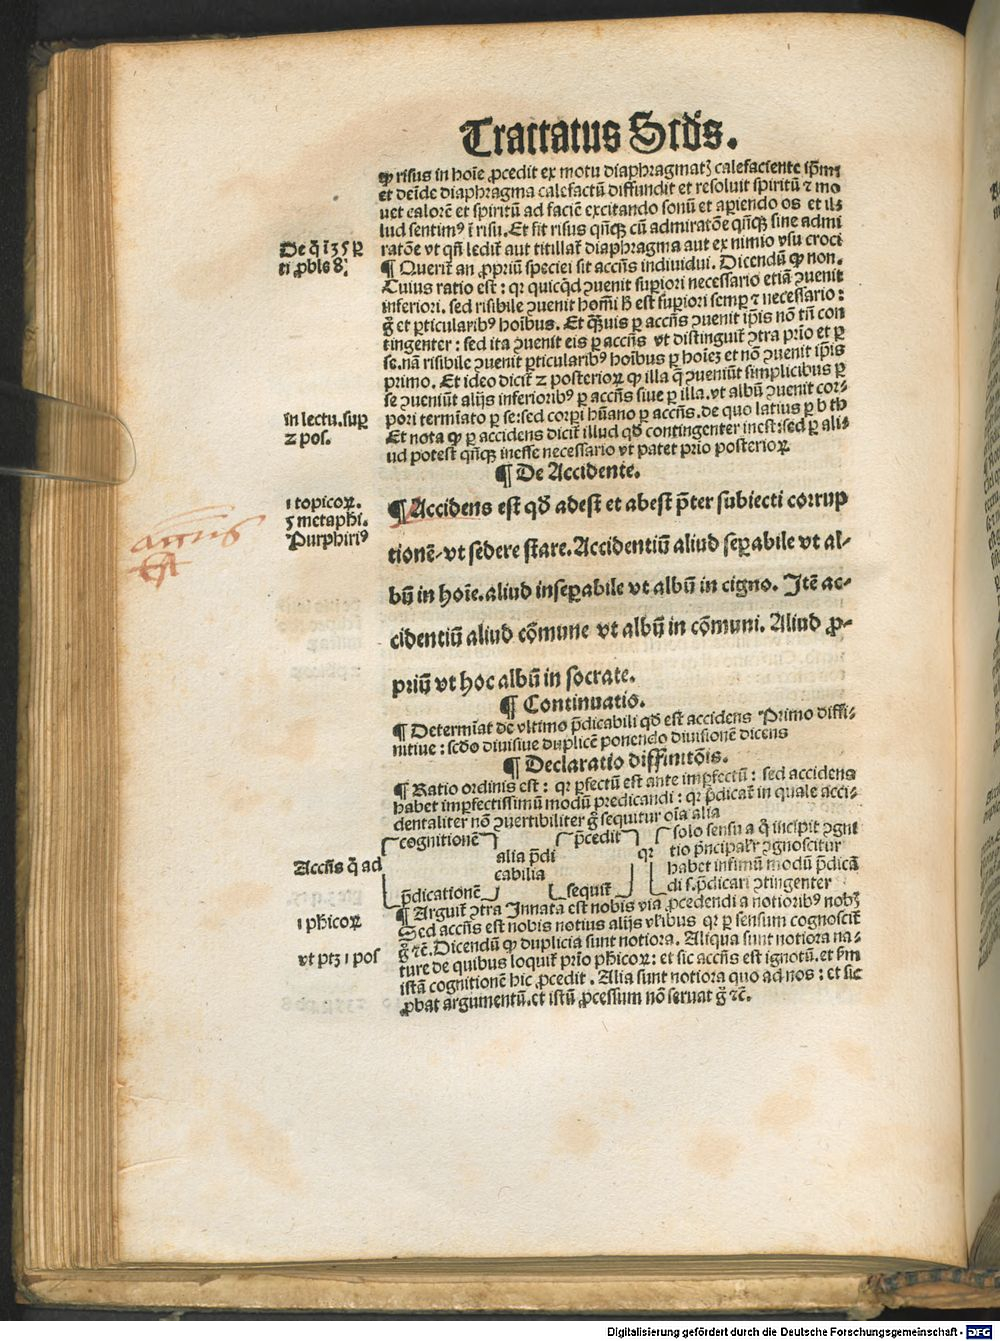 Tractatus Scd̓s.
ꝙ risus in hoīe ꝓcedit ex motu diaphragmatꝫ calefaciente ip̄m:
et deīde diaphragma calefactū diffundit et resoluit spiritū ⁊ mo
uet calorē et spiritū ad faciē excitando sonū et aperiendo os et il⸗
lud sentimꝰ ī risu. Et fit risus qn̄qꝫ cū admiratōe qn̄qꝫ sine admi
De q̄ ī 35 ꝑ
ti ꝓble 8;
ratōe vt qn̄ ledit᷑ aut titillat᷑ diaphragma aut ex nimio vsu croci
¶ Querit᷑ an ꝓpriū speciei sit accn̄s indiuidui. Dicendū ꝙ non.
Cuius ratio est : qꝛ quicqd̄ ꝯuenit suꝑiori necessario etiā ꝯuenit
inferiori. sed risibile ꝯuenit homī ħ est suꝑiori semꝑ ⁊ necessario :
g̊ et ꝑticularibꝰ hoībus. Et qͣuis ꝑ accn̄s ꝯuenit ip̄is nō tn̄ con
tingenter : sed ita ꝯuenit eis ꝑ accn̄s vt distinguit᷑ ꝯtra prīo et ꝑ
se. nā risibile ꝯuenit ꝑticularibꝰ hoībus ꝑ hoīeꝫ et nō ꝯuenit ip̄is
primo. Et ideo dicit᷑ 2 posterioꝝ ꝙ illa q̄ ꝯueniūt simplicibus ꝑ
se ꝯueniūt alijs inferioribꝰ ꝑ accn̄s siue ꝑ illa. vt albū ꝯuenit cor⸗
in lectu. suꝑ
2 pos.
pori termīato ꝑ se: sed corpi hūano ꝑ accn̄s. de quo latius ꝑ b th
Et nota ꝙ ꝑ accidens dicit᷑ illud qd̄ contingenter inest: sed ꝑ ali⸗
ud potest qn̄qꝫ inesse necessario vt patet prio posterioꝝ
¶ De Accidente.
1 topicoꝝ.
5 metaph̄i.
Purphiriꝰ
accn̄s
Est
¶ Accidens est qd̄ adest et abest p̄ter subiecti corrup
tionē⸗vt sedere stare. Accidentiū aliud seꝑabile vt al⸗
bū in hoīe. aliud inseꝑabile vt albū in cigno. Itē ac⸗
cidentiū aliud cōmune vt albū in cōmuni. Aliud ꝓ⸗
priū vt hoc albū in socrate.
¶ Continuatio.
¶ Determīat de vltimo p̄dicabili qd̄ est accidens Primo diffi⸗
nitiue : scd̓o diuisiue duplicē ponendo diuisionē dicens
¶ Declaratio diffinitōis.
¶ Ratio ordinis est : qꝛ ꝑfectū est ante imꝑfectū : sed accidens
habet imꝑfectissimū modū predicandi : qꝛ p̄dicat᷑ in quale acci⸗
dentaliter nō ꝯuertibiliter g̊ sequitur oīa alia
Accn̄s q̄ ad
cognitionē
p̄dicationē
alia p̄di
cabilia
p̄cedit
sequit᷑
qꝛ
solo sensu a q̄ incipit ꝯgni
tio p̄ncipalr̄ ꝯgnoscitur
habet infimū modū p̄dicā
di s. p̄dicari ꝯtingenter
¶ Arguit᷑ ꝯtra Innata est nobis via ꝓcedendi a notioribꝰ nobꝫ
1 ph̄icoꝝ
Sed accn̄s est nobis notius alijs vl̄ibus qꝛ ꝑ sensum cognoscit᷑
g̊ ⁊c̄. Dicendū ꝙ duplicia sunt notiora. Aliqua sunt notiora na⸗
vt ptꝫ 1 pos
ture de quibus loquit᷑ prīo ph̄icoꝝ: et sic accn̄s est ignotū. et ẜm
istā cognitionē hic ꝓcedit . Alia sunt notiora quo ad nos : et sic
ꝓbat argumentū. et istū ꝓcessum nō seruat g̊ ⁊c̄.
Digitalisierung gefördert durch die Deutsche Forschungsgemeinschaft - DFG